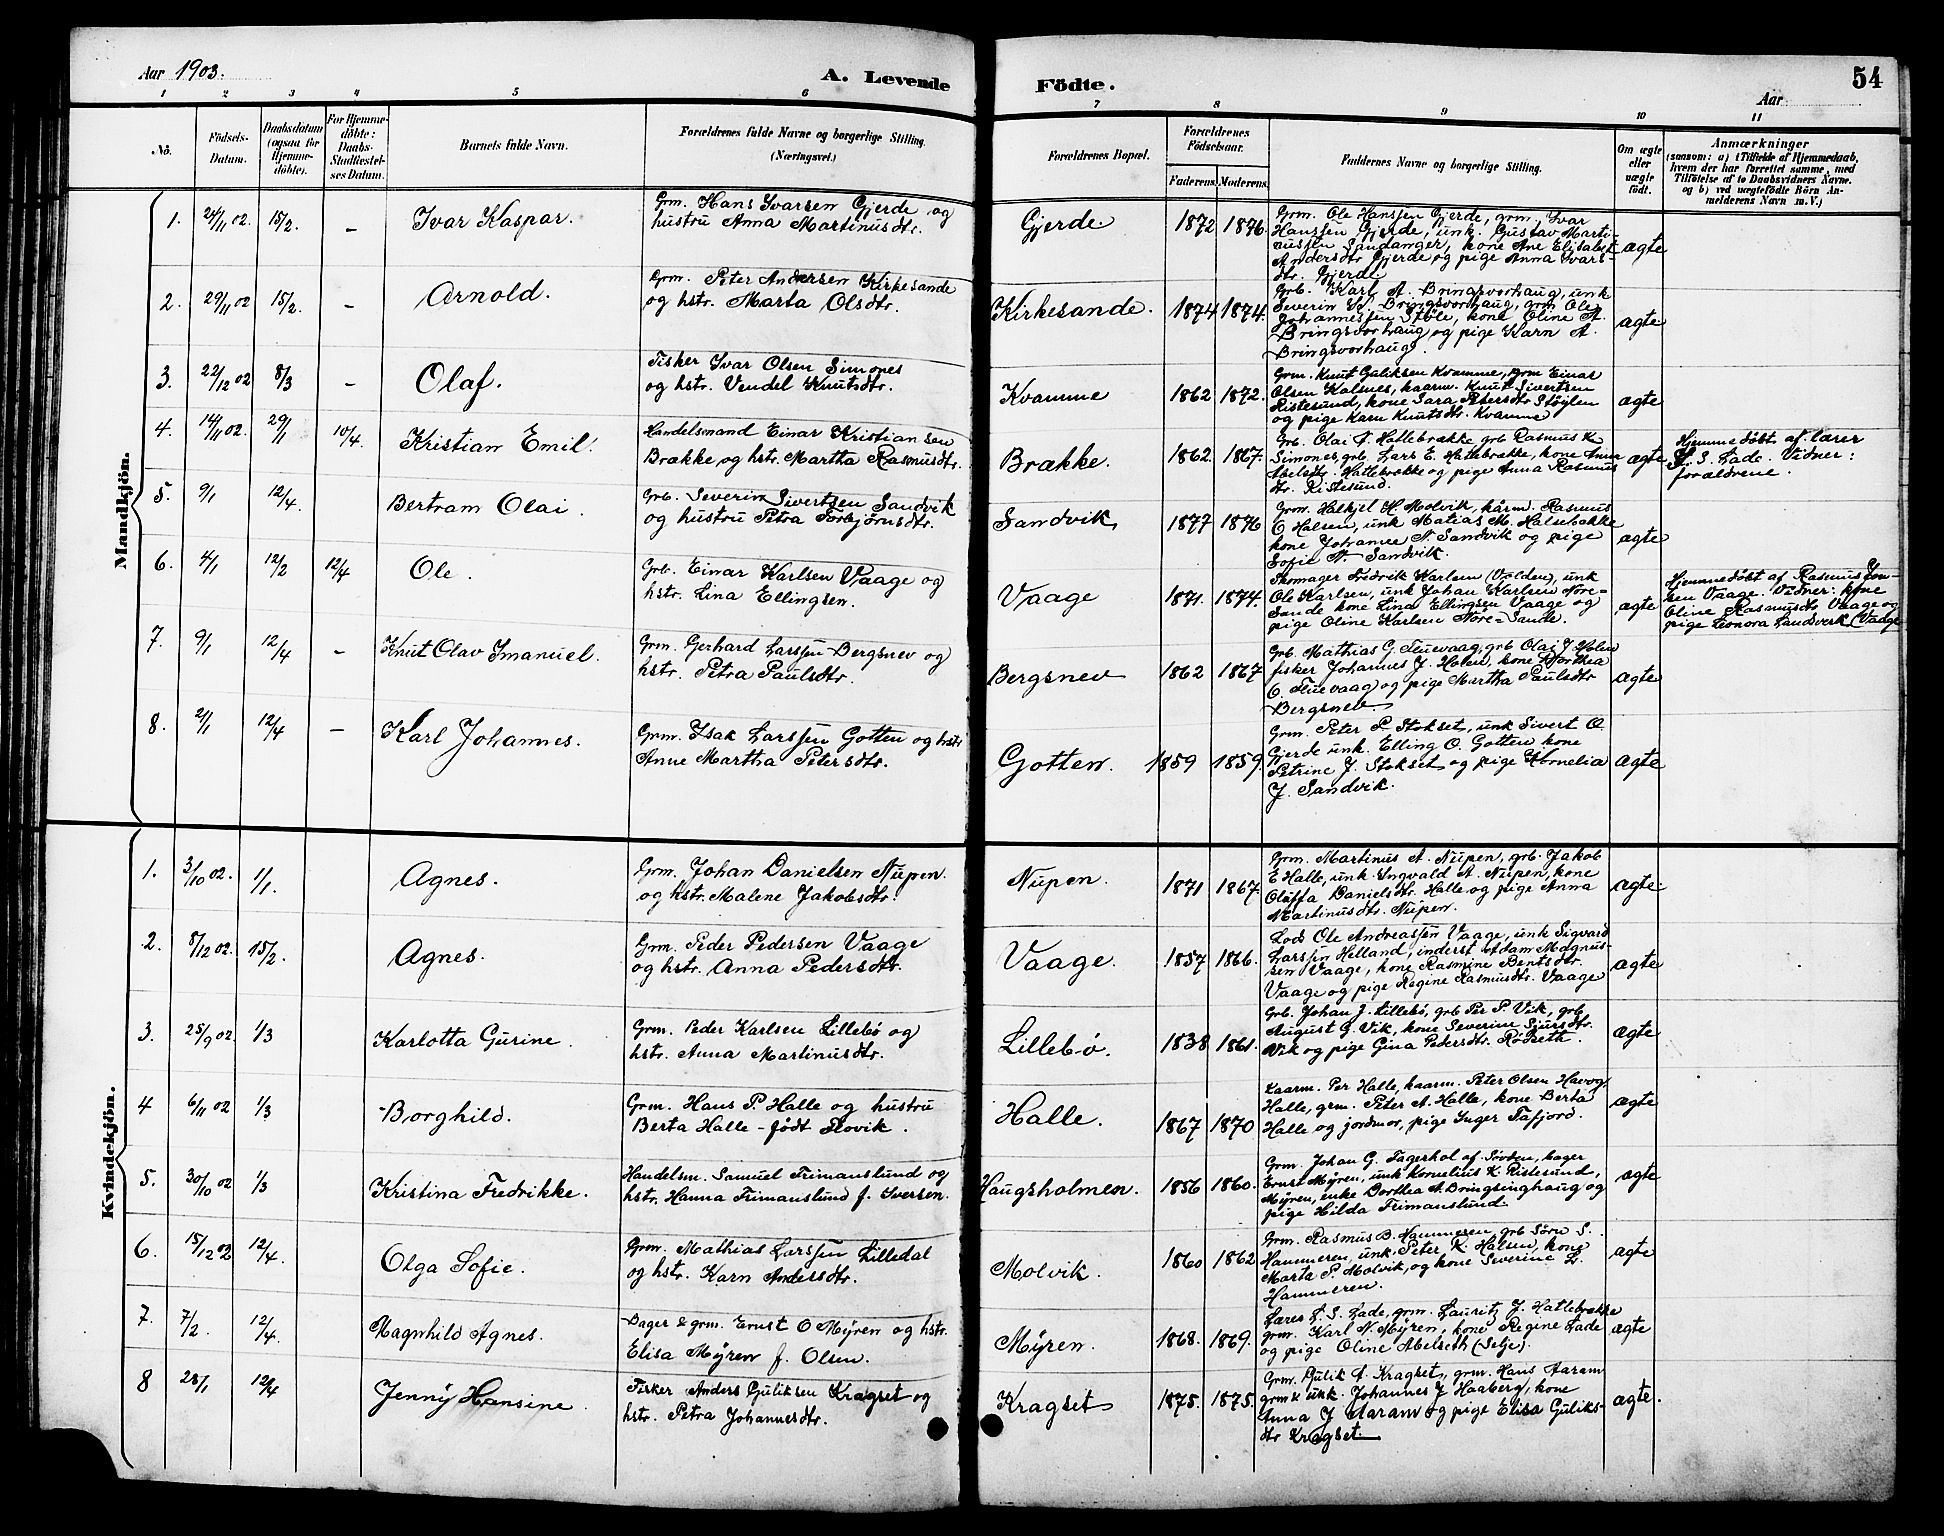 Aar 1903.
A. Levende
Födte.
Aar
54
1 2 3 4 5 6
7 8 9 10 11
No.
Födsels-Datum.
Daabsdatum (ogsaa for Hjemmedöbte).
For Hjemmedöbte: Daabs-Stadfæstelses Datum.
Barnets fulde Navn.
Forældrenes fulde Navne og borgerlige Stilling. (Næringsvei.)
Forældrenes Bopæl.
Forældrenes Födselsaar.
Faderens. Moderens.
Faddernes Navne og borgerlige Stilling.
Om ægte eller uægte födt.
Anmærkninger
(saasom: a) i Tilfælde af Hjemmedaab,
hvem der har forrettet samme, med
Tilföielse af to Daabsvidners Navne.
og b) ved uægtefödte Börn An-
melderens Navn m. V.)
Mandkjön.
1. 24/11 02. 15/2. – Ivar Kaspar.
Grm. Hans Ivarsen Gjerde og
hustru Anna Martinusdtr.
Gjerde 1872 1876.
Grm. Ole Hanssen Gjerde, grm. Ivar
Hanssen Gjerde, unk. Gustav Marti-
nussen Sandanger, kone Ane Elisabet
Andersdtr Gjerde og pige Anna Ivars-
dtr. Gjerde
ægte
2. 29/11 02 15/2. – Arnold.
Grm. Peter Andersen Kirkesande
og hstr. Marta Olsdtr.
Kirkesande. 1874 1874.
Grb. Karl A. Bringsvorhaug, unk
Severin K. Bringsvorhaug, grm Ole
Johannessen Støle, kone Oline A.
Bringsvorhaug og pige Karn A.
Bringsvorhaug.
ægte
3. 22/12 02 8/3 – Olaf.
Fisker Ivar Olsen Simones
og hstr. Vendel Knutsdtr.
Kvamme 1862 1872.
Grm. Knut Guliksen Kvamme, grm Einar
Olsen Kalsnes, kaarm. Knut Sivertsen
Ristesund, kone Sara Petersdtr Støylen
og pige Karn Knutsdtr. Kvamme
ægte
4. 14/11 02. 29/1 10/4. Kristian Emil.
Handelsmand Einar Kristiansen
Brække, og hstr. Martha Rasmusdtr.
Brække. 1862. 1867.
Grb. Olai A. Hatlebrække, grb Rasmus K.
Simones, grb. Lars E. Hatlebrække, kone Anna
Abelsdtr. Hatlebrække og pige Anna Rasmus
dtr. Ristesund.
ægte
Hjemmedöbt af lærer
L. S. Lade. Vidner:
forældrene.
5. 9/1 12/4. Bertram Olai.
Grb. Severin Sivertsen Sandvik
og hustru Petra Torbjørnsdtr.
Sandvik 1877 1876
Grm. Helkjel H. Molvik, kårm. Rasmus
O Halsen, unk Matias M. Halsebakke
kone Johanne N. Sandvik og pige
Sofie N. Sandvik.
ægte
6. 4/1 12/2 12/4 Ole.
Grb. Einar Karlsen Vaage og
hstr. Lina Ellingsen.
Vaage 1871. 1874.
Skomager Fredrik Karlsen (Volden), unk
Ole Karlsen, unk Johan Karlsen Nore-
Sande kone Lina Ellingsen Vaage og
pige Oline Karlsen Nore-Sande.
ægte
Hjemmedöbt af Rasmus Jon-
sen Vaage. Vidner: kone
Oline Rasmusdtr Vaage og
pige Leonora Landsverk (Vaage
7. 9/1 12/4 – Knut Olav Imanuel.
Grm. Gerhard Larssen Bergsnev og
hstr. Petra Paulsdtr.
Bergsnev 1862 1867
Grb. Mathias G. Fluevaag, grb Olai J. Holen
fisker Johannes J. Holen, kone Dorthea
O. Fluevaag og pige Martha Paulsdtr
Bergsnev
ægte
8. 2/1 12/4 – Karl Johannes.
Grm. Isak Larssen Gotten og hstr
Anne Martha Petersdtr.
Gotten. 1859 1859.
Grm. Peter P. Stokset, unk Sivert O.
Gjerde unk. Elling O. Gotten kone
Petrine J. Stokset og pige Kornelia
J. Sandvik.
ægte
Kvindekjön.
1. 3/10 02. 1/1. Agnes.
Grm. Johan Danielsen Nupen
og hstr. Malene Jakobsdtr.
Nupen. 1871 1867.
Grm. Martinus A. Nupen, grb. Jakob
E Halle, unk. Ingvald A. Nupen, kone
Oluffa Danielsdtr. Halle og pige Anna
Martinusdtr. Nupen.
ægte
2. 8/12 02. 15/2. Agnes.
Grm. Peder Pedersen Vaage
og hstr. Anna Pedersdtr.
Vaage. 1857 1866.
Lods Ole Andreassen Vaage, unk Sigvard
Larssen Helland, inderst Adam Magnus-
sen Vaage, kone Rasmine Bentsdtr.
Vaage og pige Regine Rasmusdtr. Vaage
ægte
3. 25/9 02. 1/3 Karlotta Gurine.
Grm. Peder Karlsen Lillebø og
hstr. Anna Martinusdtr.
Lillebø. 1838 1861.
Grb. Johan J. Lillebø, grb Per P. Vik, grb
August G. Vik, kone Severine Sjursdtr.
Vik og pige Gina Pedersdtr. Rødseth.
ægte
4 6/11 02 1/3 Borghild.
Grm. Hans P. Halle og hustru
Berta Halle – født Flovik.
Halle. 1867 1870
Kaarm. Per Halle, kaarm. Peter Olsen Havog.
Halle, grm. Peter A. Halle, kone Berta
Halle og jordmor, pige Inger Tafjord.
ægte
5. 30/10 02 1/3 Kristina Fredrikke.
Handelsm. Samuel Frimanslund og
hstr. Hanna Frimanslund f. Iversen
Haugsholmen. 1856 1860.
Grm. Johan G. Fagerhol af Sövten, bager
Ernst Myren, unk Kornelius K. Ristesund,
Myren, enke Dorthea A. Bringsinghaug og
pige Hilda Frimanslund
ægte
6. 15/12 02 12/4. Olga Sofie.
Grm. Mathias Larssen Lilledal
og hstr. Karn Andersdtr.
Molvik. 1860 1862
Grm. Rasmus B. Hammeren, grb Sörn S.
Hammeren, unk. Peter K. Halsen, kone
Marta P. Molvik, og kone Severine L.
Hammeren.
ægte
7. 7/2. 12/4. Ragnhild Agnes.
Bager & grm. Ernst O Myren og hstr.
Elisa Myren f. Olsen.
Myren. 1868. 1869.
Lærer L. S. Lade, grm. Lauritz J. Hatlebrække
grm. Karl N. Myren, kone Regine Lade
og pige Oline Abelseth (Selje).
ægte
8 28/1 12/4 Jenny Hansine.
Fisker Anders Guliksen Kragset og
hstr. Petra Johannesdtr.
Kragset 1875. 1875.
Grm. Gulik A. Kragset, grm. Hans Aaram
grm & unk. Johannes J Haaberg, kone
Anna J. Aaram og pige Elisa Guliks-
dtr Kragset.
ægte.